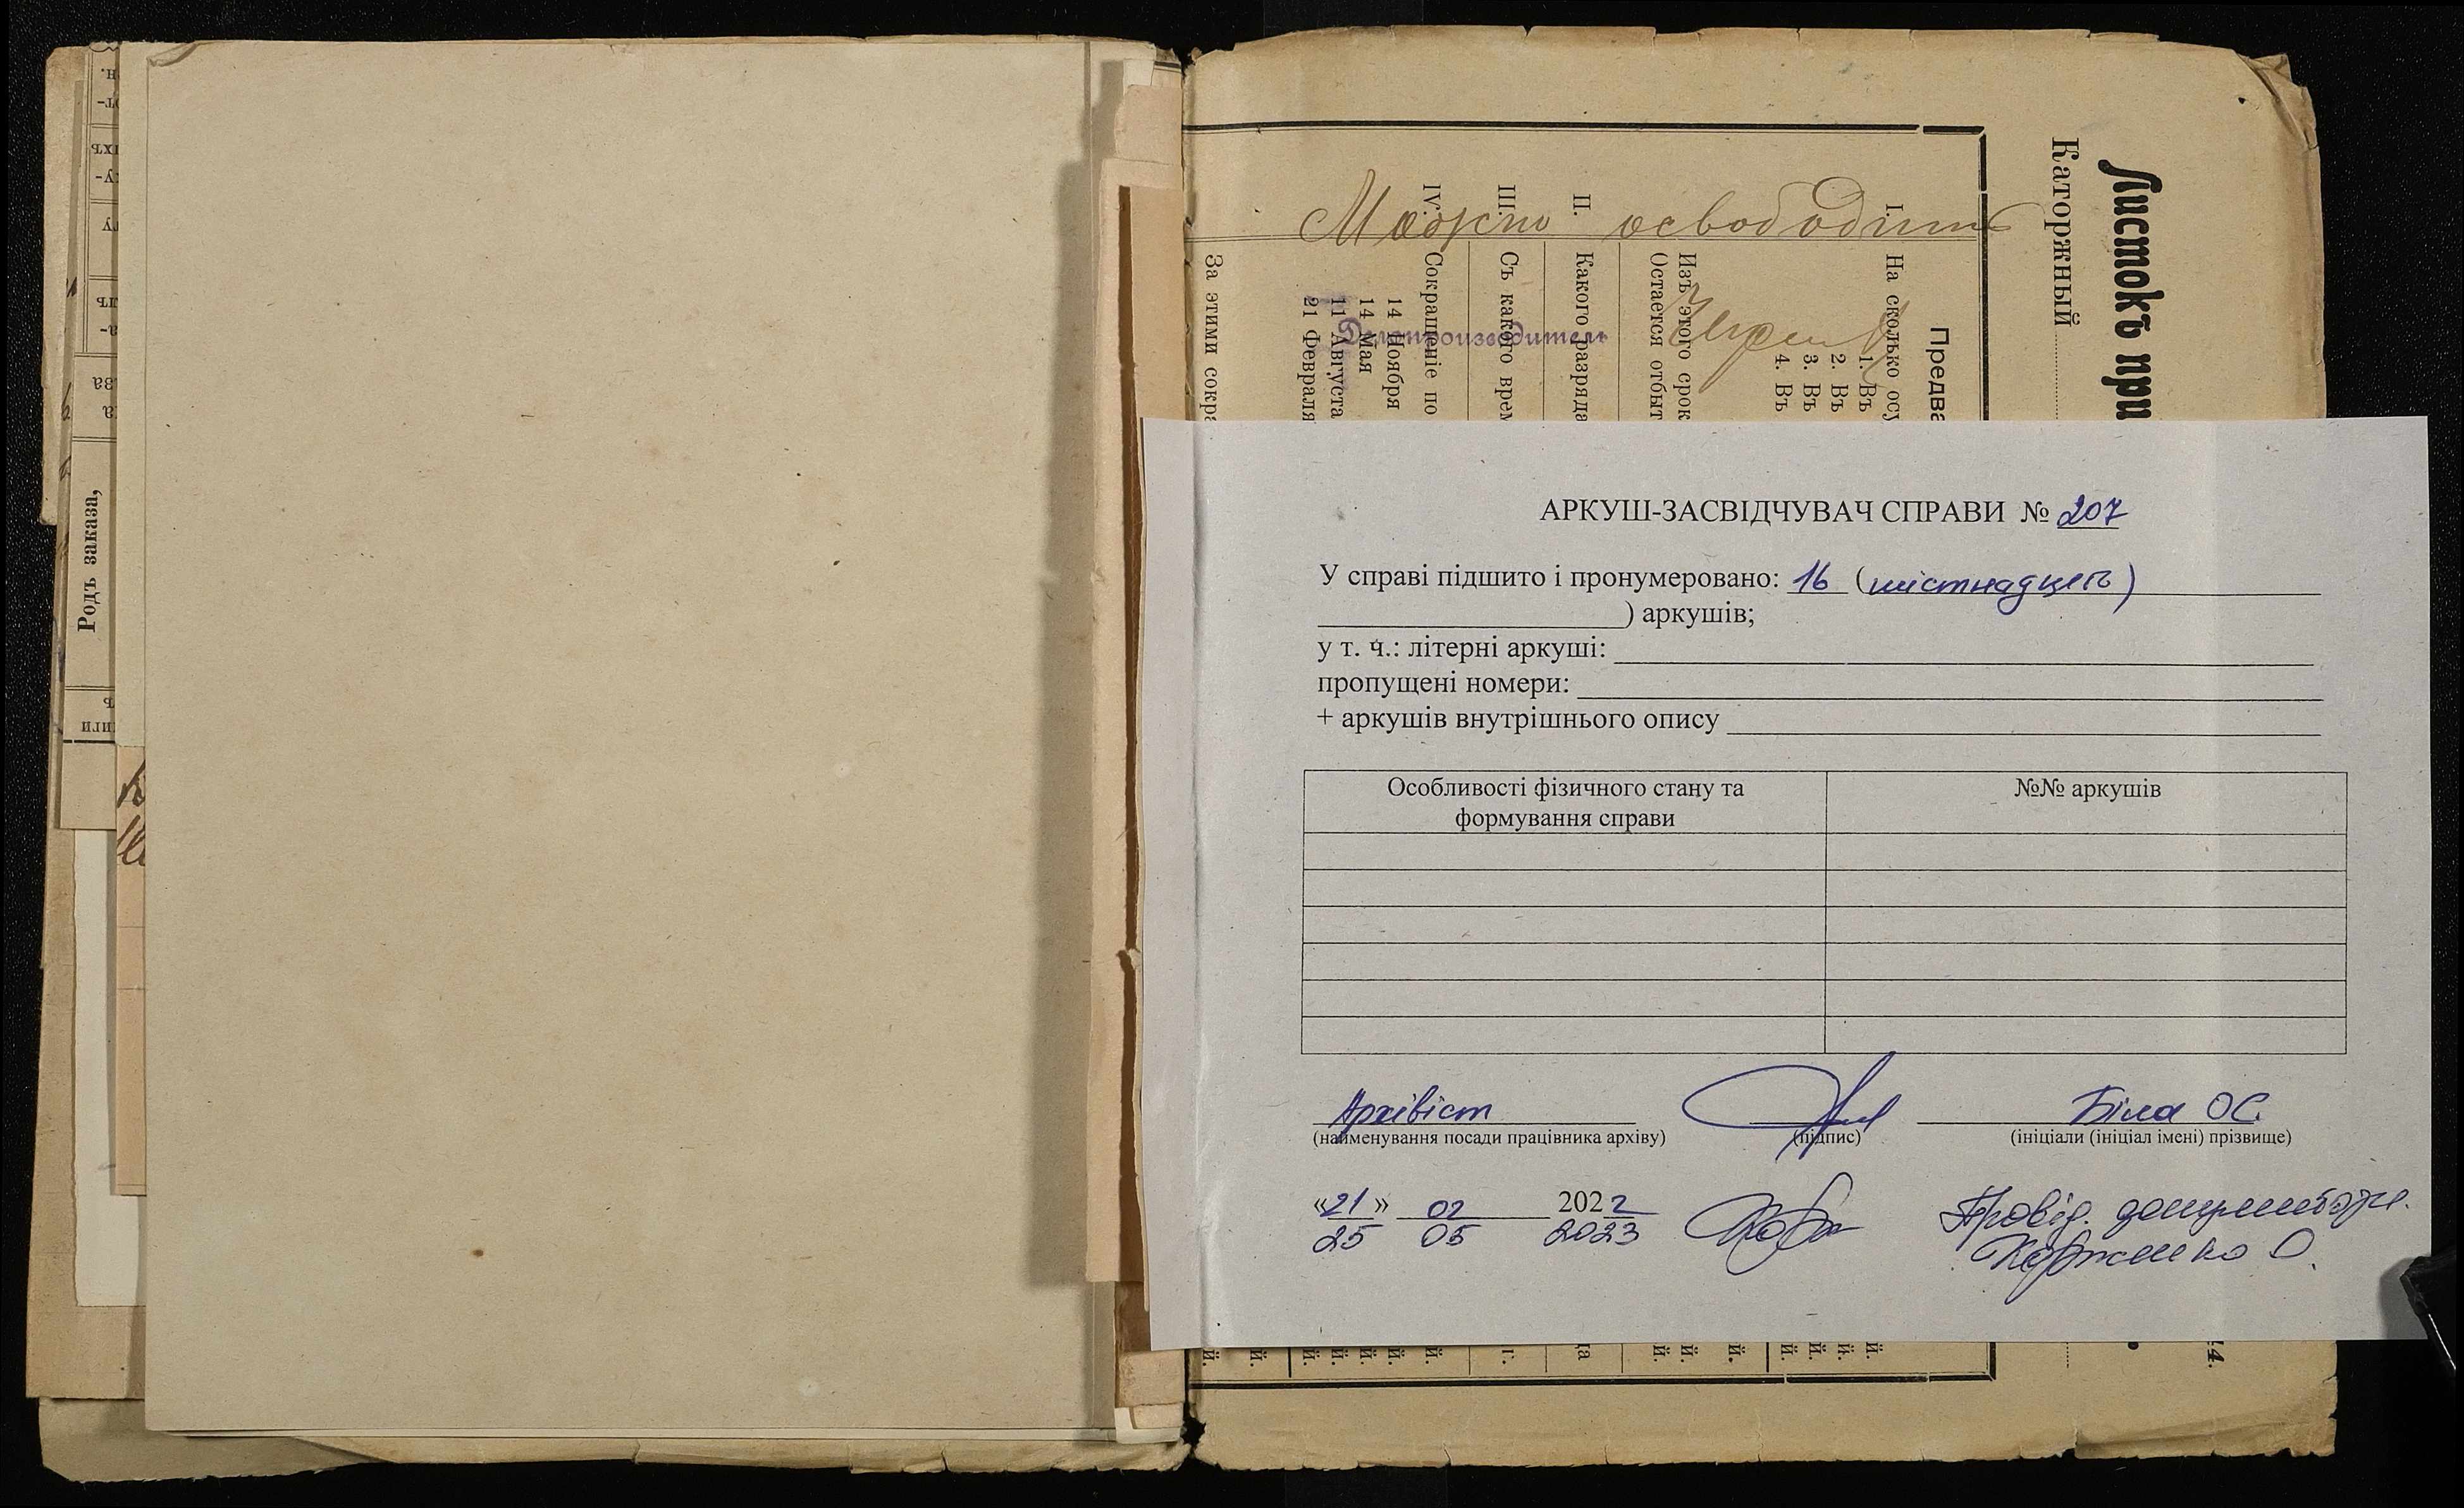 Родъ заказа,
Листокъ при
Каторжный
Предва
I.
На сколько осу
1. Въ
2. Въ
3. Въ
4. Въ
Изъ этого срок
Остается отбыт
II.
Какого разряда
III.
Съ какого врем
IV.
Сокращеніе по
14 Ноября
14 Мая
11 Августа
21 Февраля
За этими сокра
Можно освободить
Делопроизводитель
АРКУШ-ЗАСВІДЧУВАЧ СПРАВИ № 207
У справі підшито і пронумеровано: 16 (шістнадцять)
) аркушів;
у т. ч.: літерні аркуші:
пропущені номери:
+ аркушів внутрішнього опису
Особливості фізичного стану та
формування справи
№№ аркушів
Архівіст
Біла ОС
(найменування посади працівника архіву) (підпис) (ініціали (ініціал імені) прізвище)
«21» 02 2022
25 05 2023
Провід.
О.